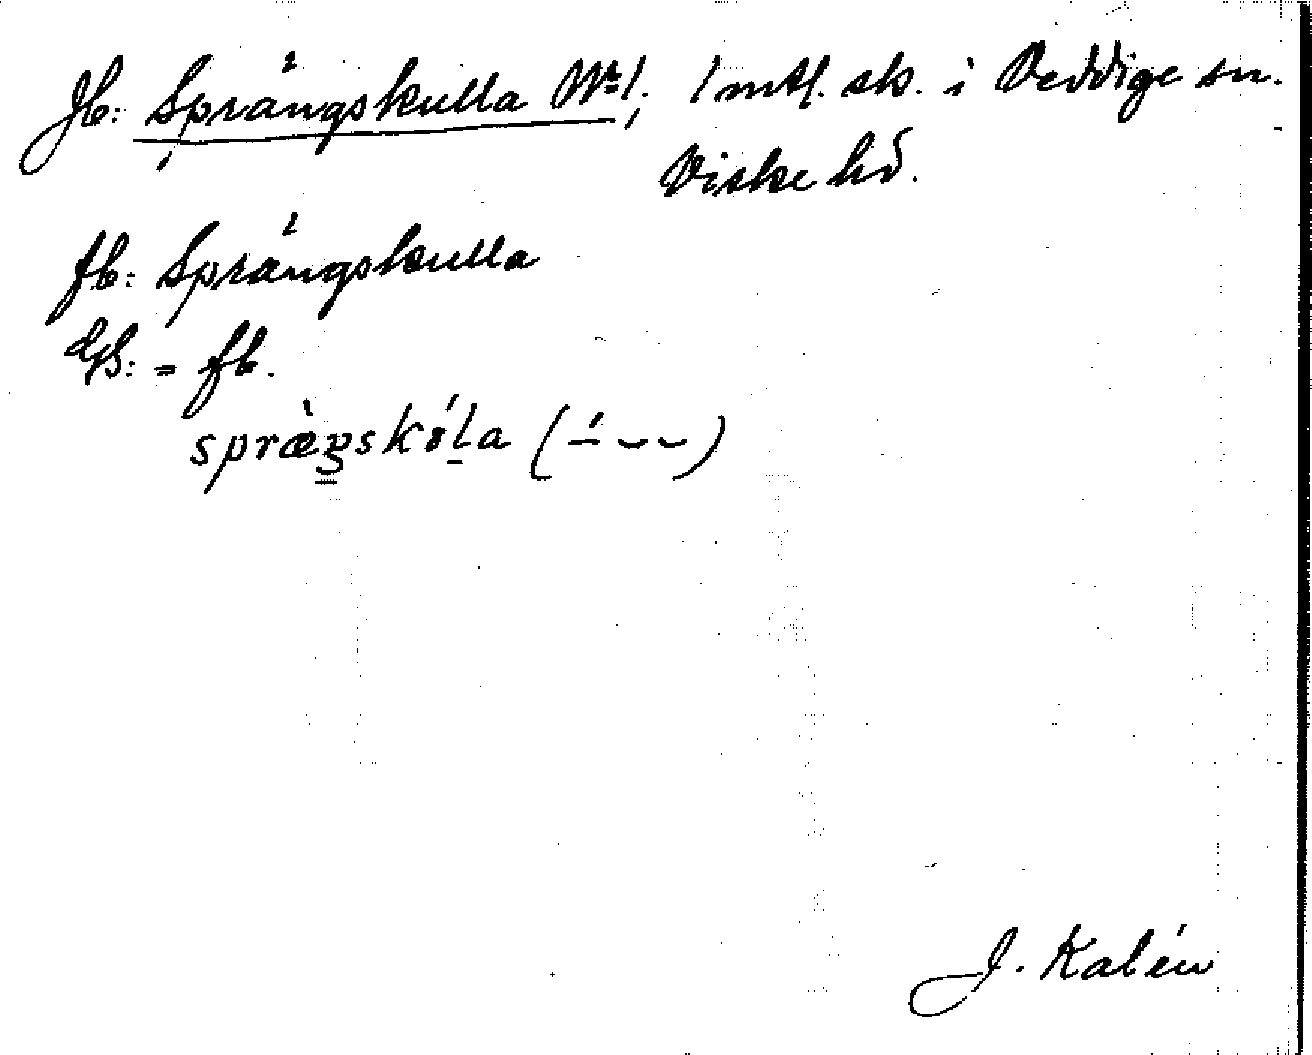 Jb: Sprängskulla Nr 1. 1 mtl. sk. i Veddige sn.
Viske hd.
fb: Sprängskulla
GS: = fb.
spræŋskó̤la (–́ ⏑ ⏑)
J. Kalén